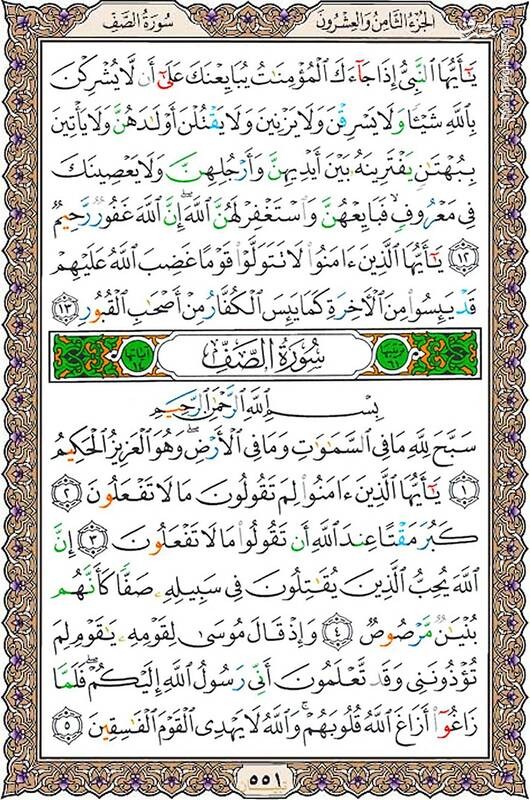 الجزء الثامن والعشرون
سورة الصف
يَـٰٓأَيُّهَا ٱلنَّبِىُّ إِذَا جَآءَكَ ٱلْمُؤْمِنَـٰتُ يُبَايِعْنَكَ عَلَىٰٓ أَن لَّا يُشْرِكْنَ
بِٱللَّهِ شَيْـًٔا وَلَا يَسْرِقْنَ وَلَا يَزْنِينَ وَلَا يَقْتُلْنَ أَوْلَـٰدَهُنَّ وَلَا يَأْتِينَ
بِبُهْتَـٰنٍ يَفْتَرِينَهُۥ بَيْنَ أَيْدِيهِنَّ وَأَرْجُلِهِنَّ وَلَا يَعْصِينَكَ
فِى مَعْرُوفٍ فَبَايِعْهُنَّ وَٱسْتَغْفِرْ لَهُنَّ ٱللَّهَ إِنَّ ٱللَّهَ غَفُورٌ رَّحِيمٌ
١٢ يَـٰٓأَيُّهَا ٱلَّذِينَ ءَامَنُوا۟ لَا تَتَوَلَّوْا۟ قَوْمًا غَضِبَ ٱللَّهُ عَلَيْهِمْ
قَدْ يَئِسُوا۟ مِنَ ٱلْـَٔاخِرَةِ كَمَا يَئِسَ ٱلْكُفَّارُ مِنْ أَصْحَـٰبِ ٱلْقُبُورِ ١٣
سُورَةُ الصَّفِّ
بِسْمِ ٱللَّهِ ٱلرَّحْمَـٰنِ ٱلرَّحِيمِ
سَبَّحَ لِلَّهِ مَا فِى ٱلسَّمَـٰوَٰتِ وَمَا فِى ٱلْأَرْضِ ۖ وَهُوَ ٱلْعَزِيزُ ٱلْحَكِيمُ
١ يَـٰٓأَيُّهَا ٱلَّذِينَ ءَامَنُوا۟ لِمَ تَقُولُونَ مَا لَا تَفْعَلُونَ ٢
كَبُرَ مَقْتًا عِندَ ٱللَّهِ أَن تَقُولُوا۟ مَا لَا تَفْعَلُونَ ٣ إِنَّ
ٱللَّهَ يُحِبُّ ٱلَّذِينَ يُقَـٰتِلُونَ فِى سَبِيلِهِۦ صَفًّا كَأَنَّهُم
بُنْيَـٰنٌ مَّرْصُوصٌ ٤ وَإِذْ قَالَ مُوسَىٰ لِقَوْمِهِۦ يَـٰقَوْمِ لِمَ
تُؤْذُونَنِى وَقَد تَّعْلَمُونَ أَنِّى رَسُولُ ٱللَّهِ إِلَيْكُمْ ۖ فَلَمَّا
زَاغُوٓا۟ أَزَاغَ ٱللَّهُ قُلُوبَهُمْ ۚ وَٱللَّهُ لَا يَهْدِى ٱلْقَوْمَ ٱلْفَـٰسِقِينَ ٥
٥٥١